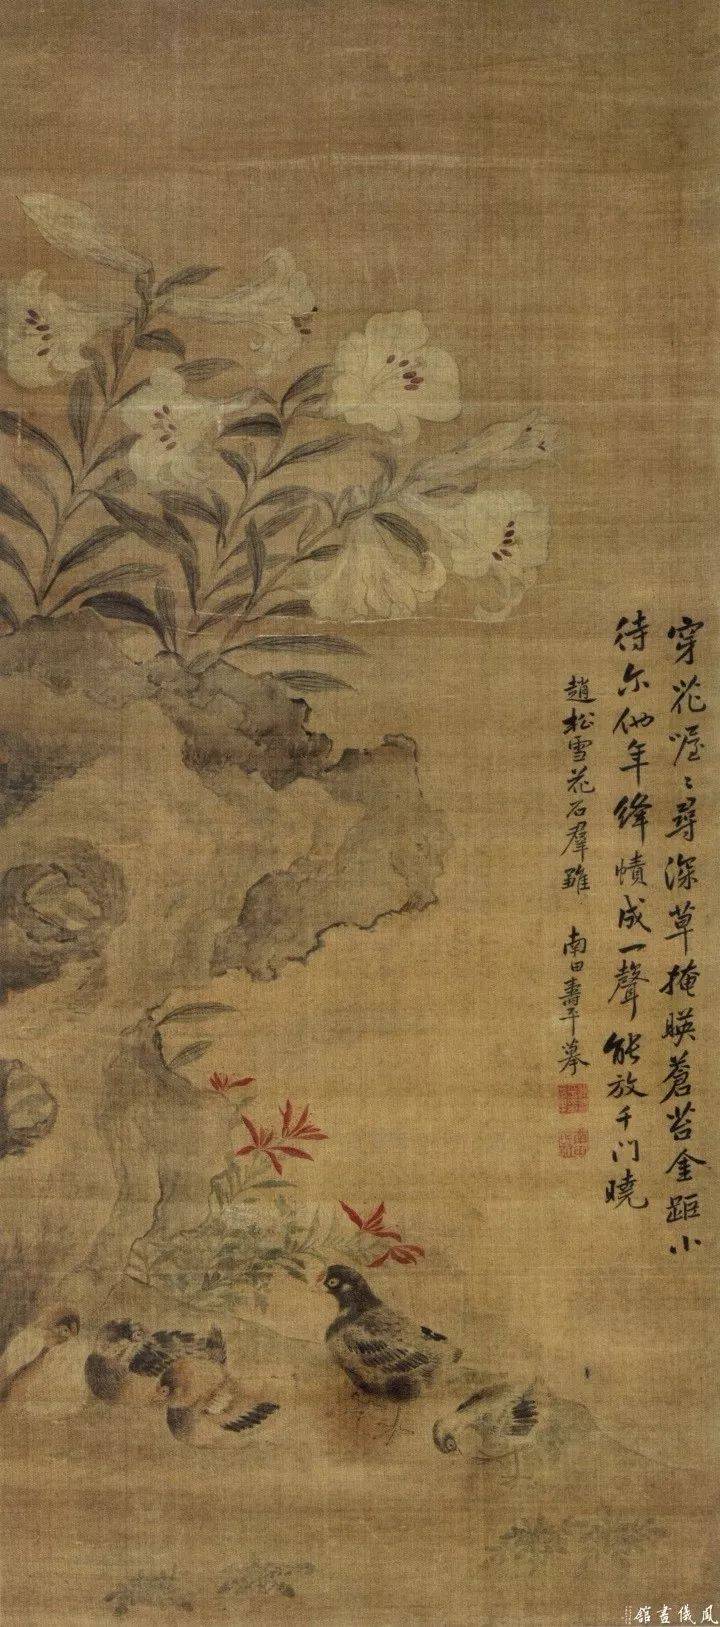 穿花喔〻尋深草掩暎蒼苔金距小
待尓他年絳幘成一聲能放千门曉
趙松雪花石羣雛 南田壽平摹
風儀畫館